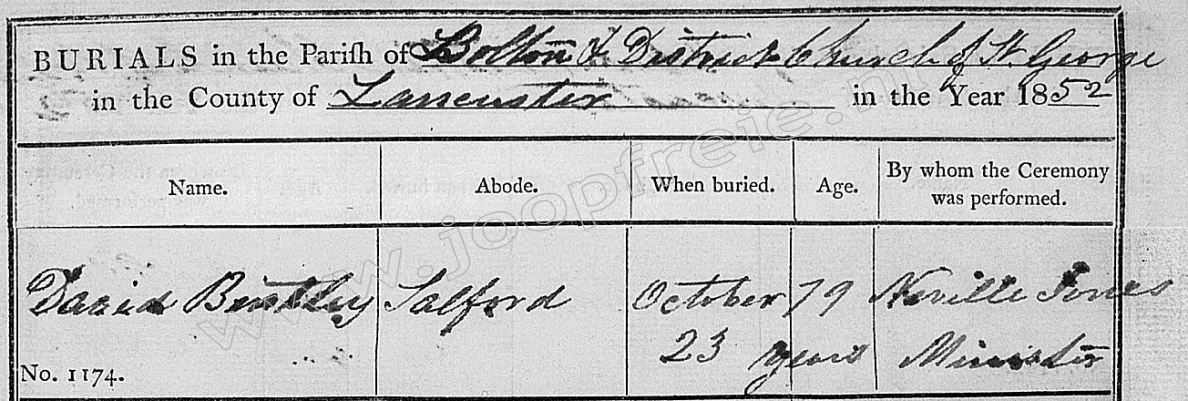 BURIALS in the Parish of Bolton & District Church of St. George
in the County of Lancaster in the Year 1852
Name. Abode. When buried. Age. By whom the Ceremony was performed.
David Bentley Salford October 79 Neville Jones
23 years Minister
No. 1174.
www.joopfreie.nl